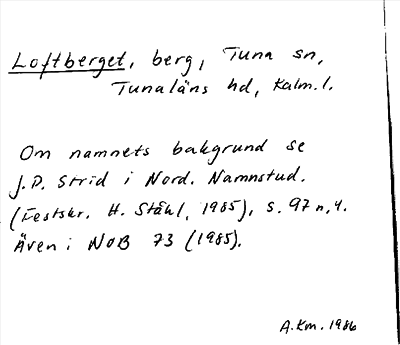 Loftberget, berg, Tuna sn,
Tunaläns hd, Kalm. l.
Om namnets bakgrund se
J. P. Strid i Nord. Namnstud.
(Festskr. H. Ståhl, 1985), s. 97 n. 4.
Även i NoB 73 (1985).
A.Km. 1986